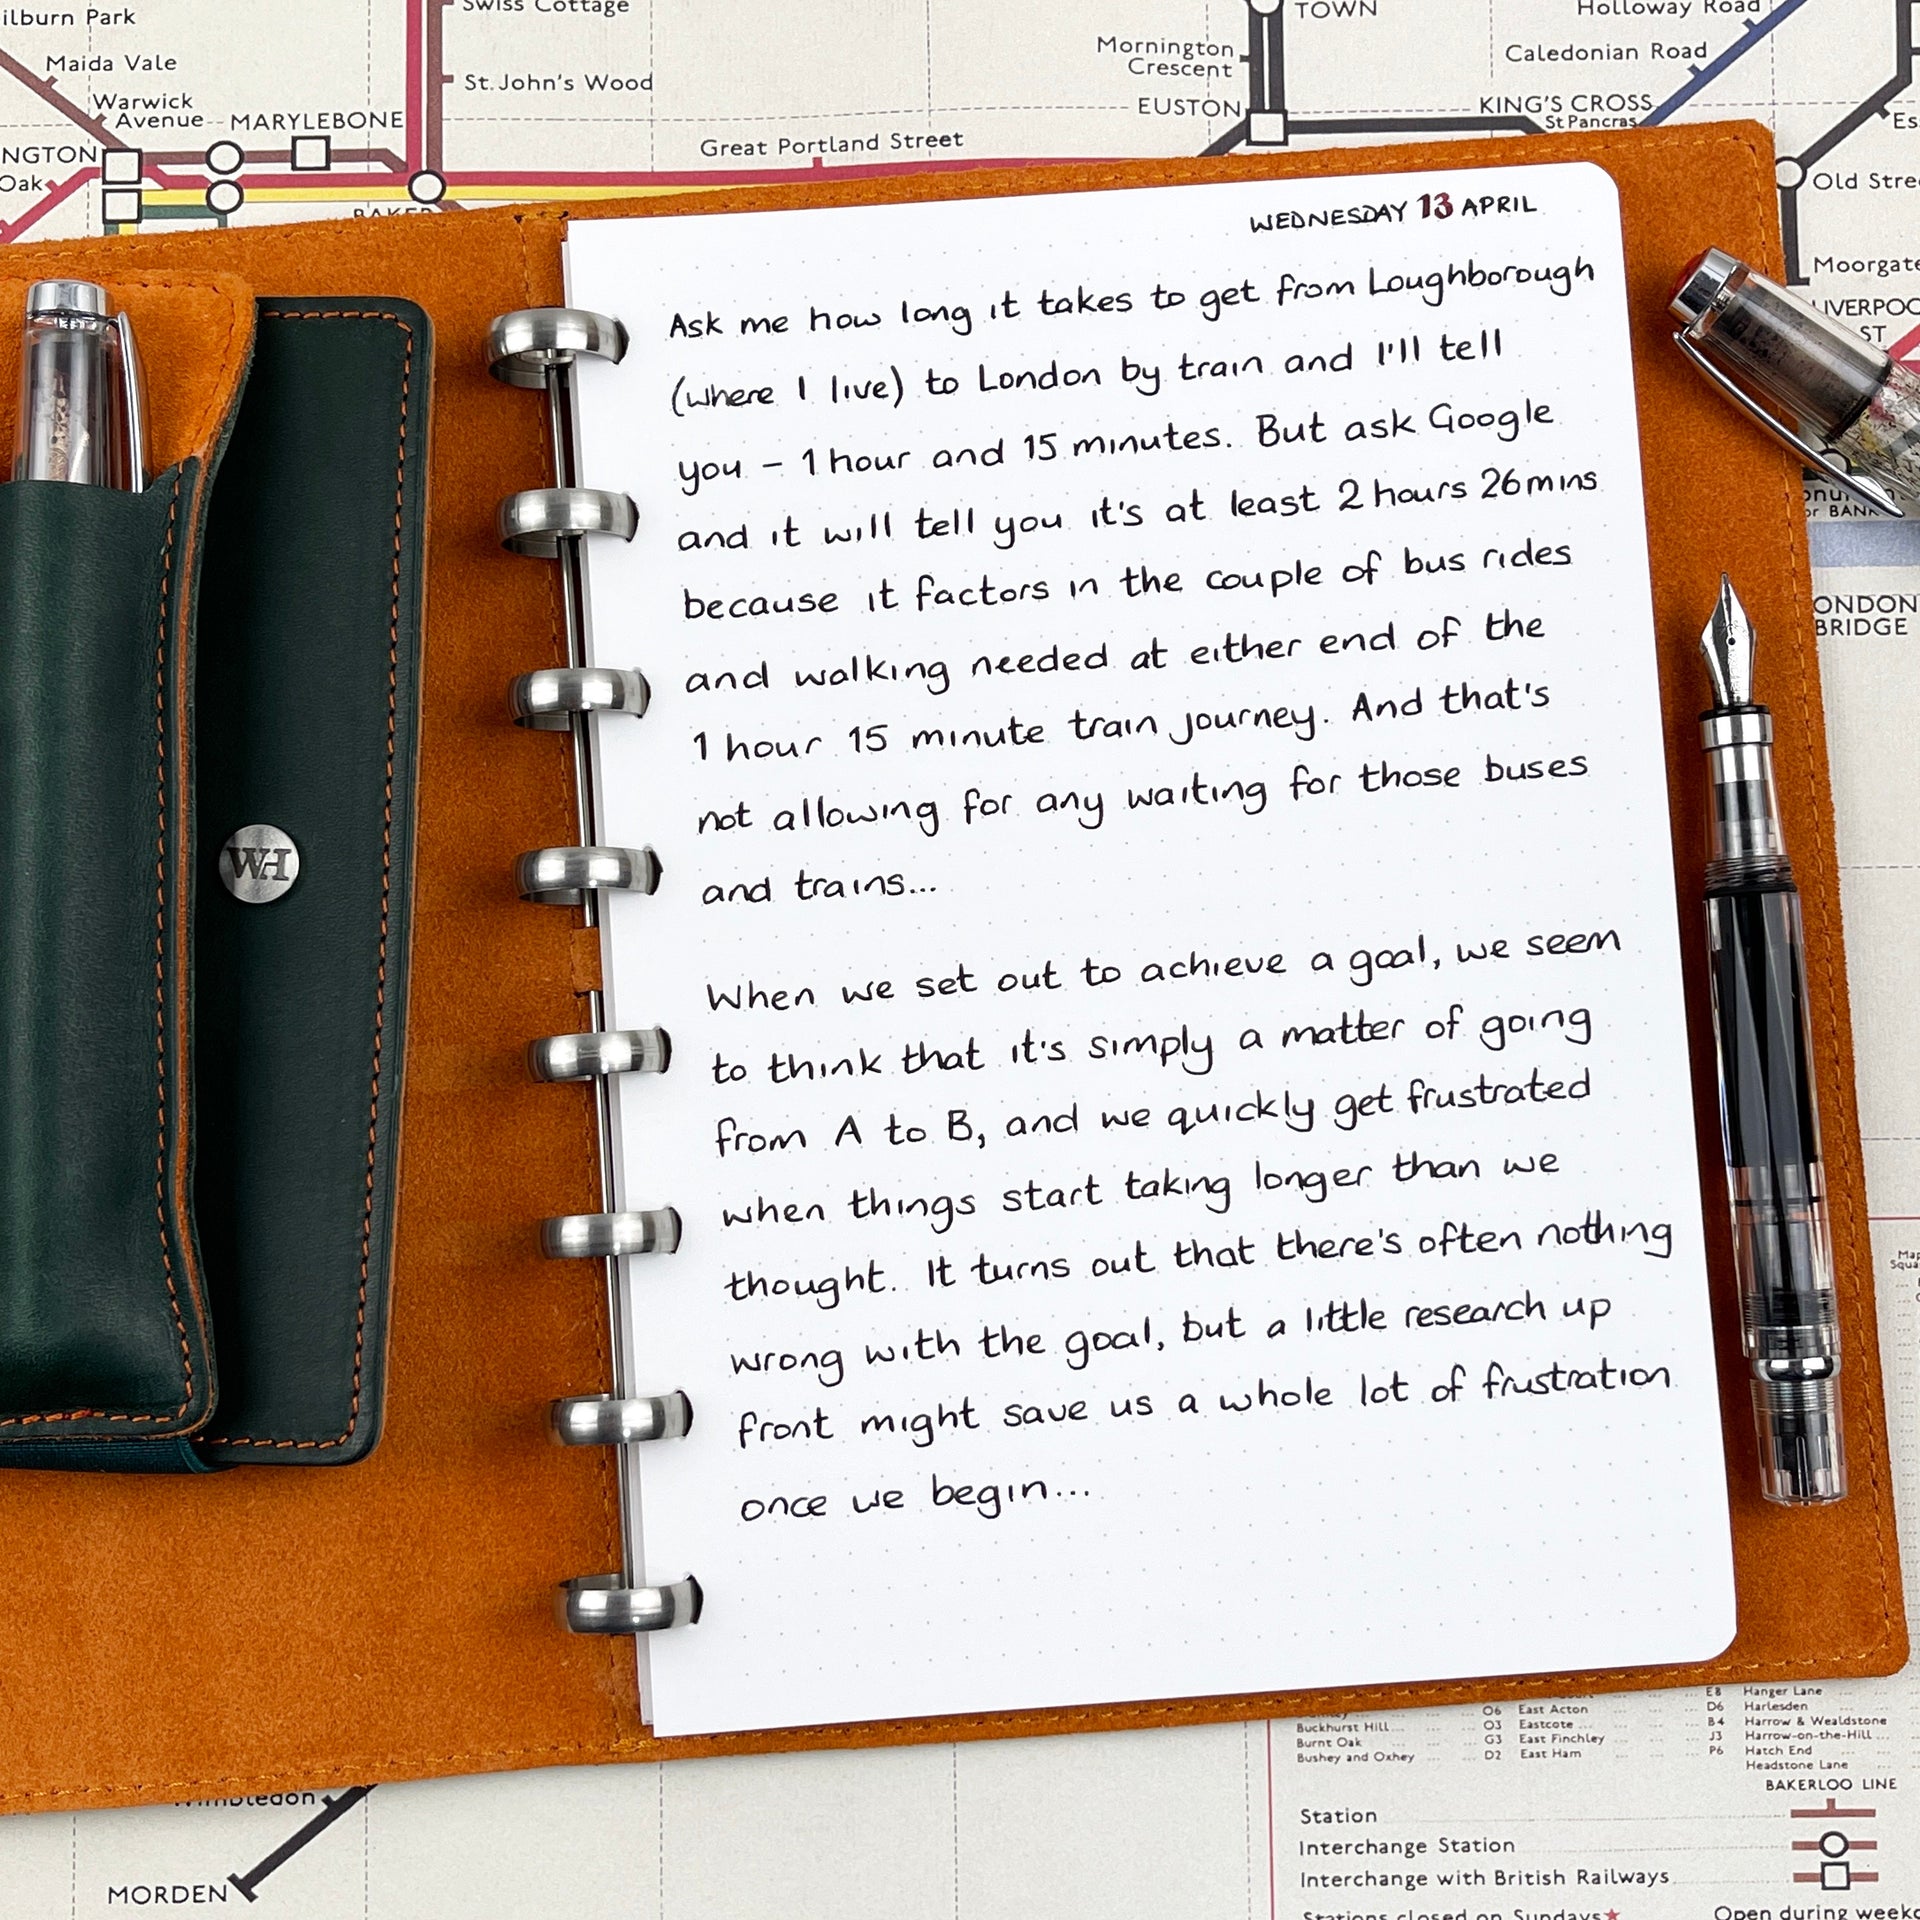 Swiss Cottage
TOWN
Holloway Road
Maida Vale
St. John's Wood
Mornington
Crescent
Caledonian Road
Warwick
Avenue
MARYLEBONE
EUSTON
KING'S CROSS
St Pancras
Great Portland Street
Oak
Old
Moorgate
ST
LONDON
BRIDGE
WH
WEDNESDAY 13 APRIL
Ask me how long it takes to get from Loughborough
(where I live) to London by train and I'll tell
you – 1 hour and 15 minutes. But ask Google
and it will tell you it's at least 2 hours 26 mins
because it factors in the couple of bus rides
and walking needed at either end of the
1 hour 15 minute train journey. And that's
not allowing for any waiting for those buses
and trains...
When we set out to achieve a goal, we seem
to think that it's simply a matter of going
from A to B, and we quickly get frustrated
when things start taking longer than we
thought. It turns out that there's often nothing
wrong with the goal, but a little research up
front might save us a whole lot of frustration
once we begin...
Wimbledon
MORDEN
Buckhurst Hill
Burnt Oak
Bushey and Oxhey
O6 East Acton
O3 Eastcote
G3 East Finchley
D2 East Ham
E8 Hanger Lane
D6 Harlesden
B4 Harrow & Wealdstone
J3 Harrow-on-the-Hill
P6 Hatch End
Headstone Lane
BAKERLOO LINE
Station
Interchange Station
Interchange with British Railways
Stations closed on Sundays
Open during